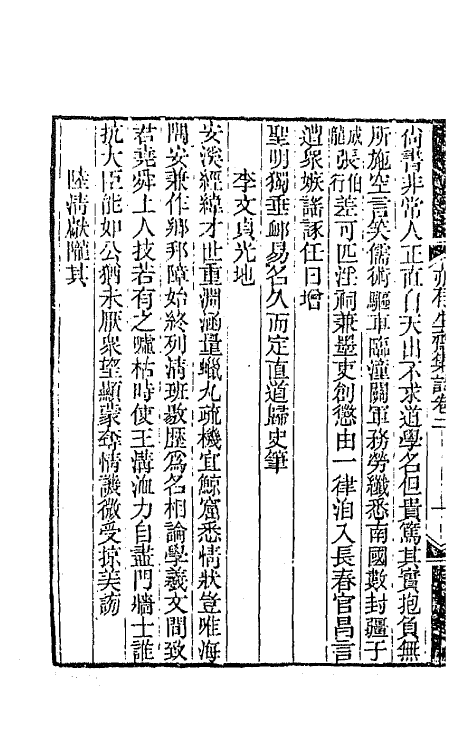 尙書非常人正直自天出不求道學名但貴篤其實抱負無
所施空言笑儒術驅車臨潼關軍務勞纖悉南國數封疆子
成龍張伯行差可匹淫祠兼墨吏創懲由一律洎入長春宮昌言
遭衆嫉謠諑任日增
聖明獨垂卹易名久而定直道歸史筆
李文貞光地
安溪經緯才世重淵涵量蠟丸疏機宜鯨窟悉情狀豈唯海
隅安兼作鄉邦障始終列淸班敭歷爲名相論學羲文間致
君堯舜上人技若有之噓枯時使王溝洫力自盡門牆士誰
抗大臣能如公猶未厭衆望顯蒙奪情譏微受掠美謗
陸淸獻隴其
亦有生齋集詩卷二